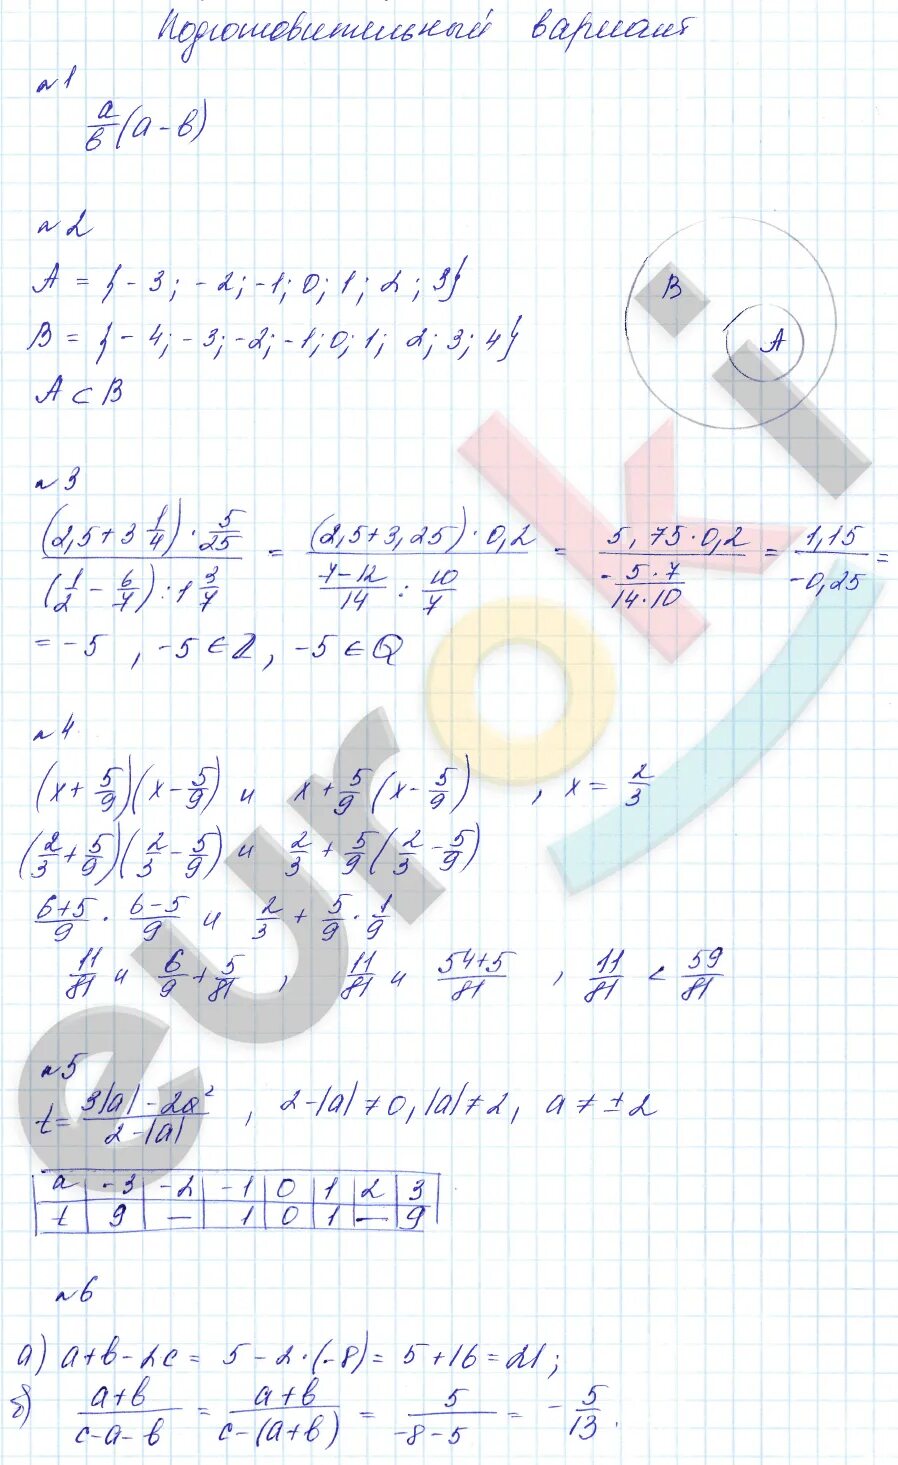 Подготовительный вариант
№1
a/b (a - b)
№2
A = {-3; -2; -1; 0; 1; 2; 3}
B = {-4; -3; -2; -1; 0; 1; 2; 3; 4}
A ⊂ B
B
A
№3
(2,5 + 3 1/4) · 5/25 / (1/2 - 6/7) : 1 3/7 = (2,5 + 3,25) · 0,2 / 7-12/14 : 10/7 = 5,75 · 0,2 / - 5·7/14·10 = 1,15/-0,25 =
= -5, -5 ∈ Z, -5 ∈ Q
№4
(x + 5/9)(x - 5/9) и x + 5/9 (x - 5/9), x = 2/3
(2/3 + 5/9)(2/3 - 5/9) и 2/3 + 5/9 (2/3 - 5/9)
6+5/9 · 6-5/9 и 2/3 + 5/9 · 1/9
11/81 и 6/9 + 5/81, 11/81 и 54+5/81, 11/81 < 59/81
№5
t = 3|a| - 2a² / 2 - |a|, 2 - |a| ≠ 0, |a| ≠ 2, a ≠ ±2
a -3 -2 -1 0 1 2 3
t 9 — 1 0 1 — 9
№6
а) a + b - 2c = 5 - 2 · (-8) = 5 + 16 = 21;
б) a+b / c-a-b = a+b / c-(a+b) = 5 / -8-5 = - 5/13.
euroki